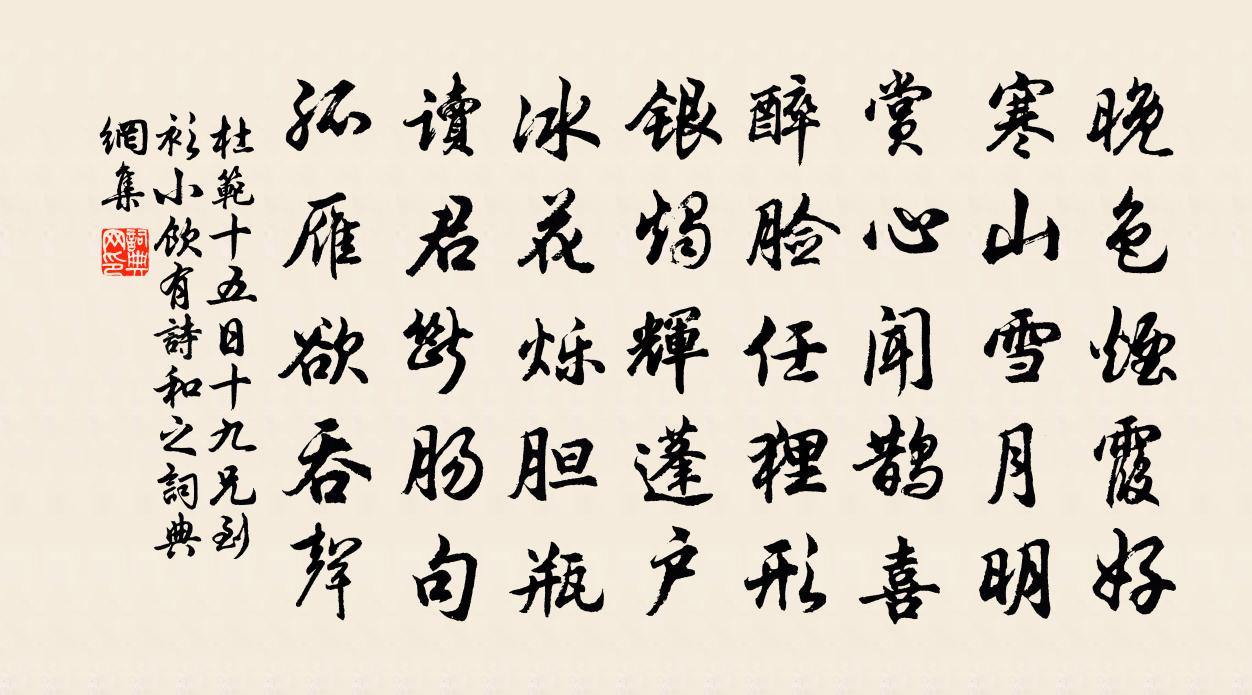 晚色煙霞好
寒山雪月明
賞心闻鹊喜
醉脸任狸形
银燭輝蓬户
冰花烁胆瓶
讀君断肠句
孤雁欲吞聲
杜範十五日十九兄到
衫小飲有詩和之詞典
網集
詞典网印